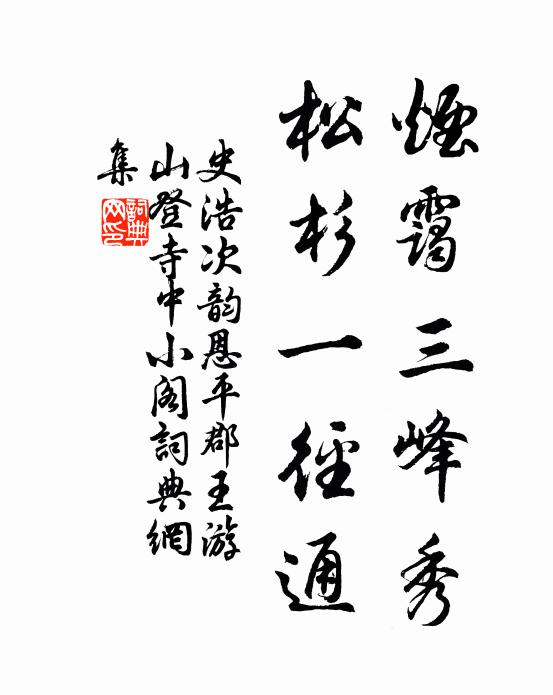 煙靄三峰秀
松杉一徑通
史浩次韵恩平郡王游
山登寺中小閣詞典網
集
詞典
网印